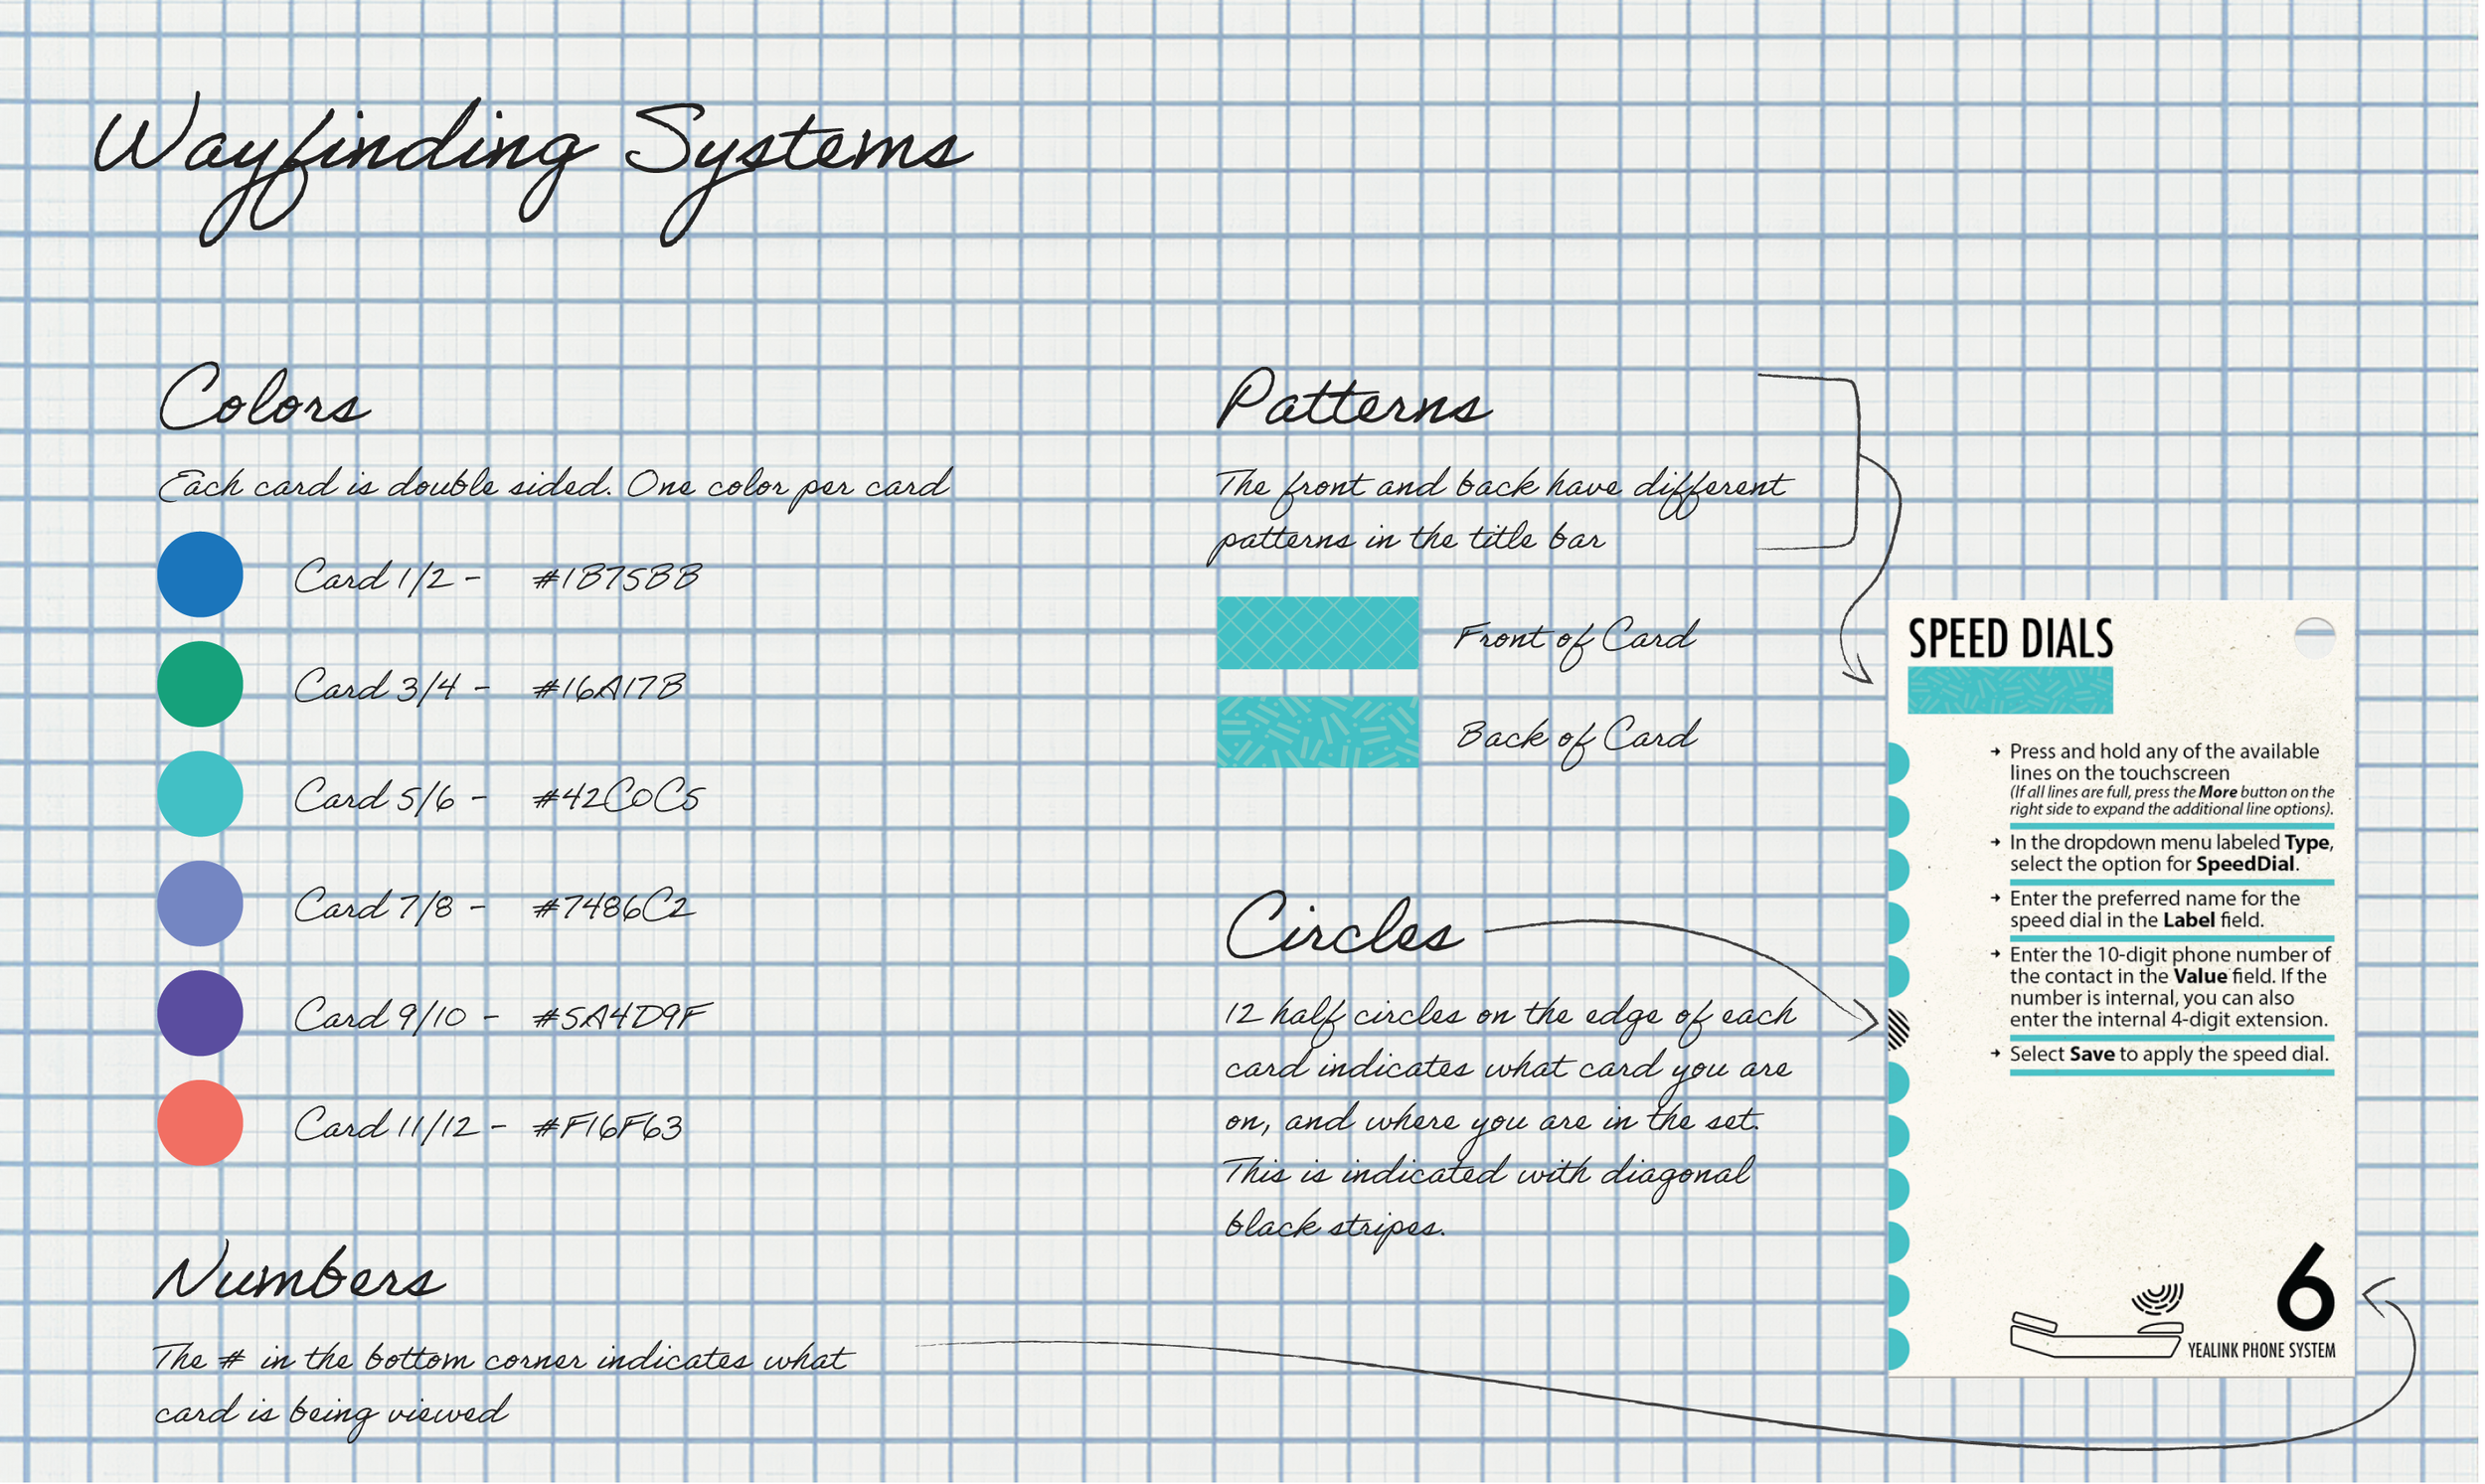 Wayfinding Systems
Colors
Each card is double sided. One color per card
Card 1/2 - #1B75BB
Card 3/4 - #16A17B
Card 5/6 - #42C0C5
Card 7/8 - #7486C2
Card 9/10 - #5A4D9F
Card 11/12 - #F16F63
Numbers
The # in the bottom corner indicates what
card is being viewed
Patterns
The front and back have different
patterns in the title bar
Front of Card
Back of Card
Circles
12 half circles on the edge of each
card indicates what card you are
on, and where you are in the set.
This is indicated with diagonal
black stripes.
SPEED DIALS
→ Press and hold any of the available
lines on the touchscreen
(If all lines are full, press the More button on the
right side to expand the additional line options).
→ In the dropdown menu labeled Type,
select the option for SpeedDial.
→ Enter the preferred name for the
speed dial in the Label field.
→ Enter the 10-digit phone number of
the contact in the Value field. If the
number is internal, you can also
enter the internal 4-digit extension.
→ Select Save to apply the speed dial.
6
YEALINK PHONE SYSTEM